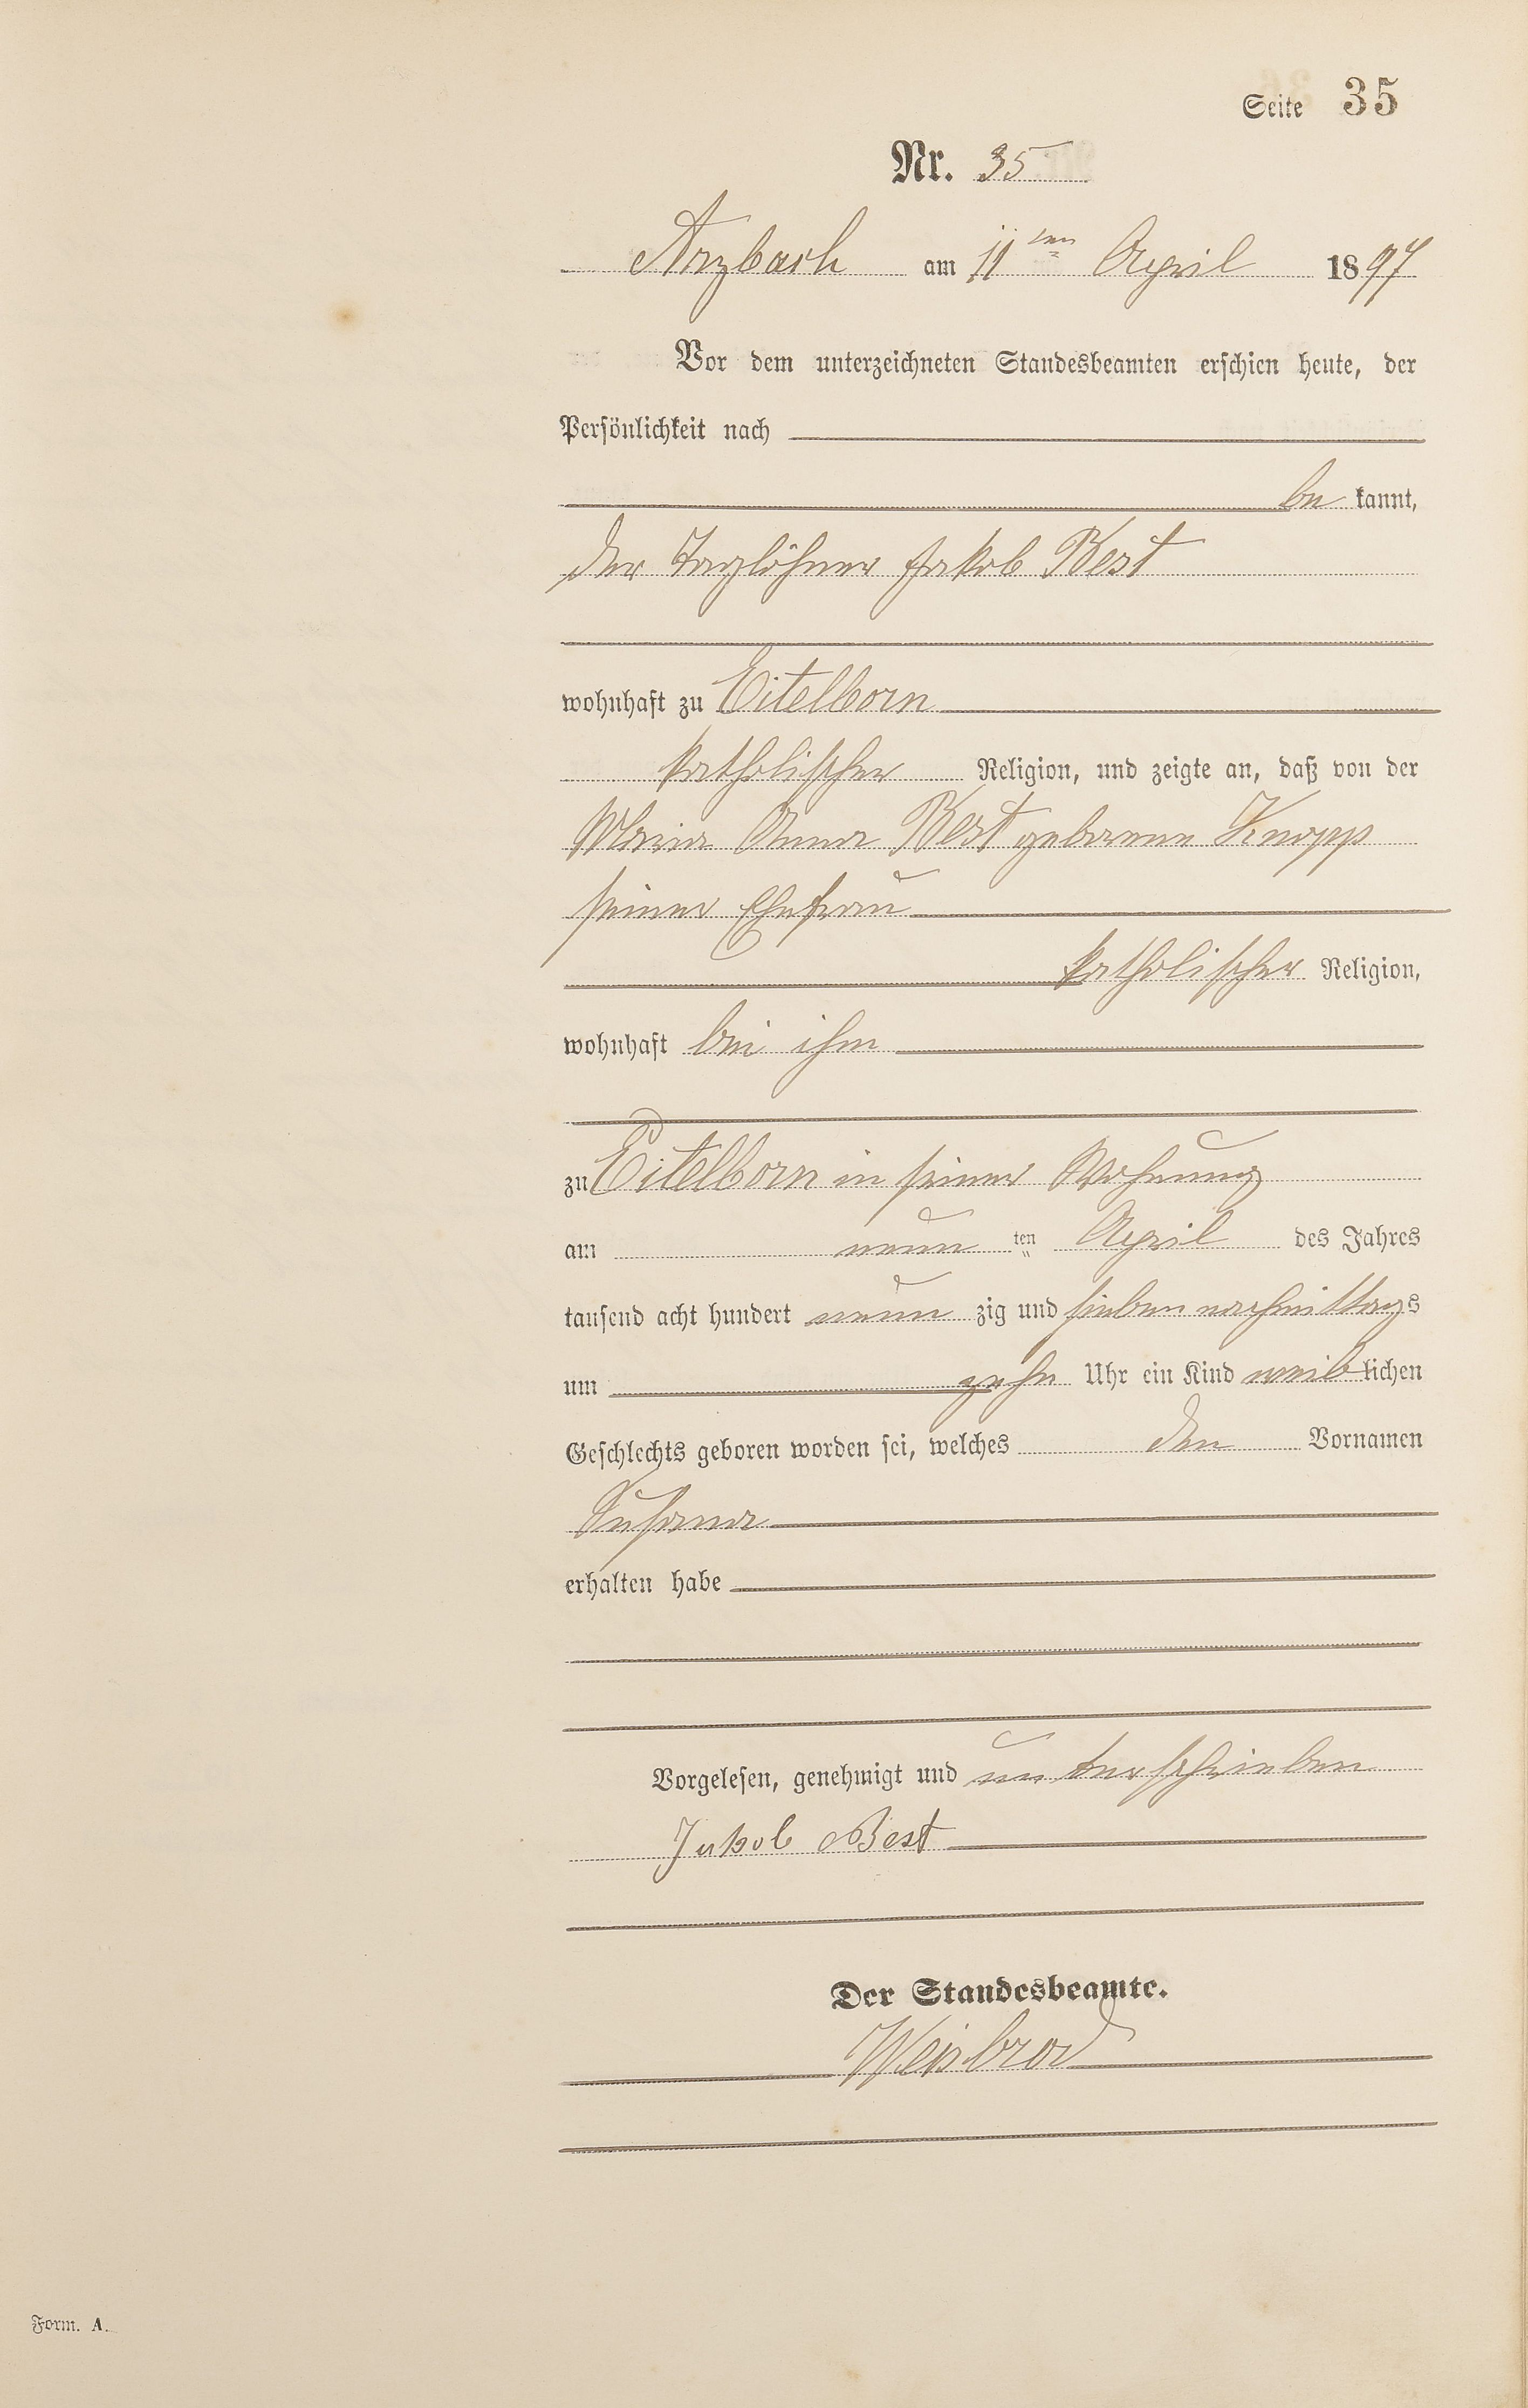 Seite 35
Nr. 35
Arzbach am 11ten April 1897
Vor dem unterzeichneten Standesbeamten erschien heute, der
Persönlichkeit nach
be kannt,
der Taglöhner Jakob Best
wohnhaft zu Eitelborn
katholischer Religion, und zeigte an, daß von der
Maria Anna Best geborene Knopp
seiner Ehefrau
katholischer Religion,
wohnhaft bei ihm
zu Eitelborn in seiner Wohnung
am neun ten April des Jahres
tausend acht hundert neun zig und sieben nachmittags
um zehn Uhr ein Kind weiblichen
Geschlechts geboren worden sei, welches den Vornamen
Susana
erhalten habe
Vorgelesen, genehmigt und unterschrieben
Jakob Best
Der Standesbeamte.
Weisbrod
Form. A.